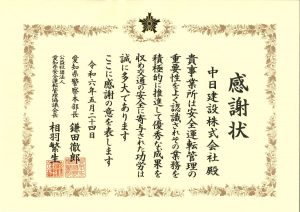 感謝状
中日建設株式会社 殿
貴事業所は安全運転管理の
重要性をよく認識されその業務を
積極的に推進して優秀な成果を
収め交通の安全に寄与された功労は
誠に多大であります
ここに感謝の意を表します
令和六年五月二十四日
愛知県警察本部長 鎌田徹郎
公益社団法人
愛知県安全運転管理協議会会長 相羽繁生